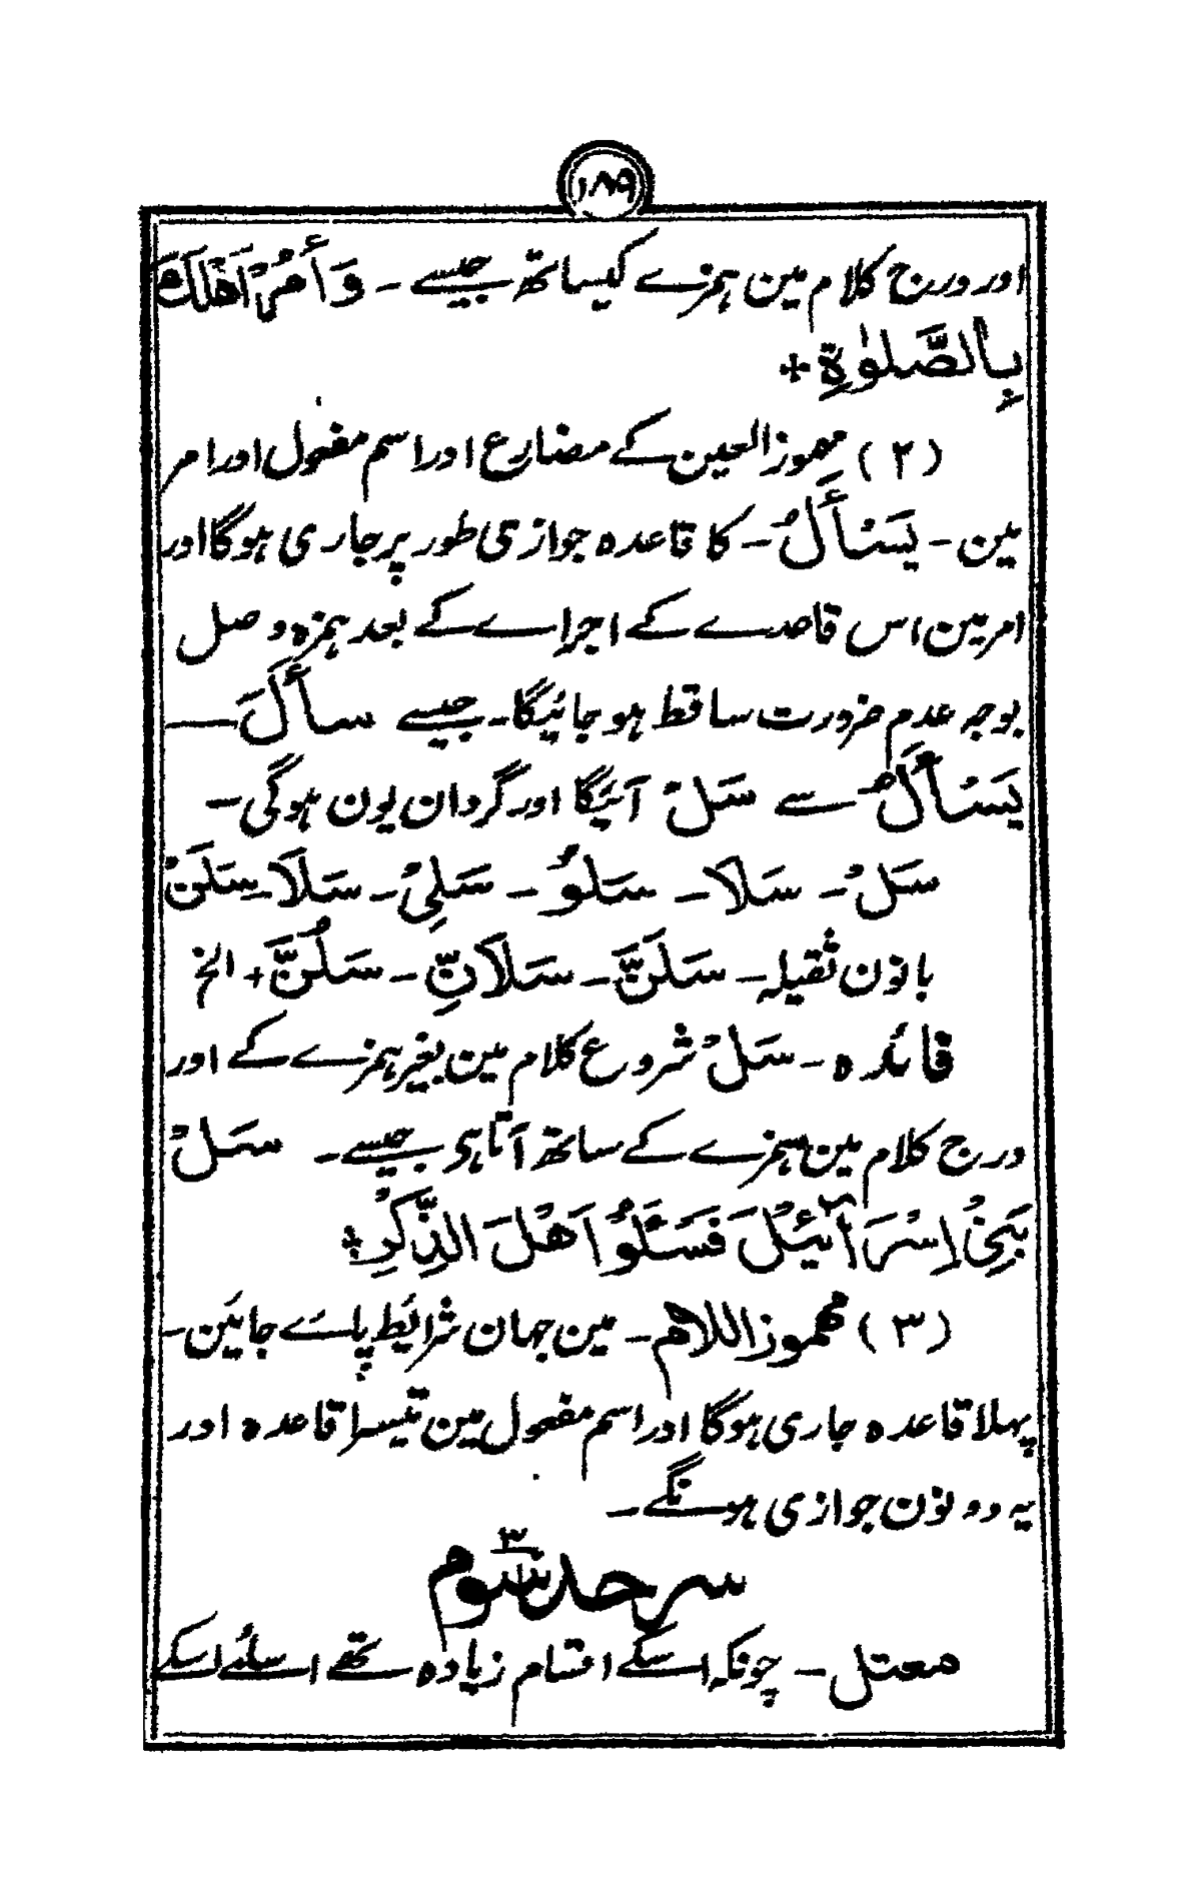 ۱۸۹
اور درج کلام مین ہمزے کیساتھ جیسے - وَأْمُرْ اَهْلَكَ
بِالصَّلٰوةِ +
(۲) مہموز العین کے مضارع اور اسم مفعول اور امر
مین - یَسْأَلُ - کا قاعدہ جوازی طور پر جاری ہوگا اور
امر مین اس قاعدے کے اجراے کے بعد ہمزہ وصل
بوجہ عدم ضرورت ساقط ہو جائیگا - جیسے سأَلَ —
یَسْأَلُ سے سَلْ آئیگا اور گردان یون ہوگی -
سَلْ - سَلَا - سَلُوْ - سَلِیْ - سَلَا - سَلْنَ
بانون ثقیلہ - سَلَنَّ - سَلَانِّ - سَلُنَّ + الخ
فائدہ - سَلْ شروع کلام مین بغیر ہمزے کے اور
درج کلام مین ہمزے کے ساتھ آتا ہی جیسے - سَلْ
بَنِیْ اِسْرَآئِیْلَ فَسْئَلُوْا اَهْلَ الذِّكْرِ +
(۳) مہموز اللام - مین جہان شرائط پاے جائین -
پہلا قاعدہ جاری ہوگا اور اسم مفعول مین تیسرا قاعدہ اور
یہ دونون جوازی ہونگے -
سرحد سوم ۳
معتل - چونکہ اسکے اقسام زیادہ تھے اسلئے اسکے